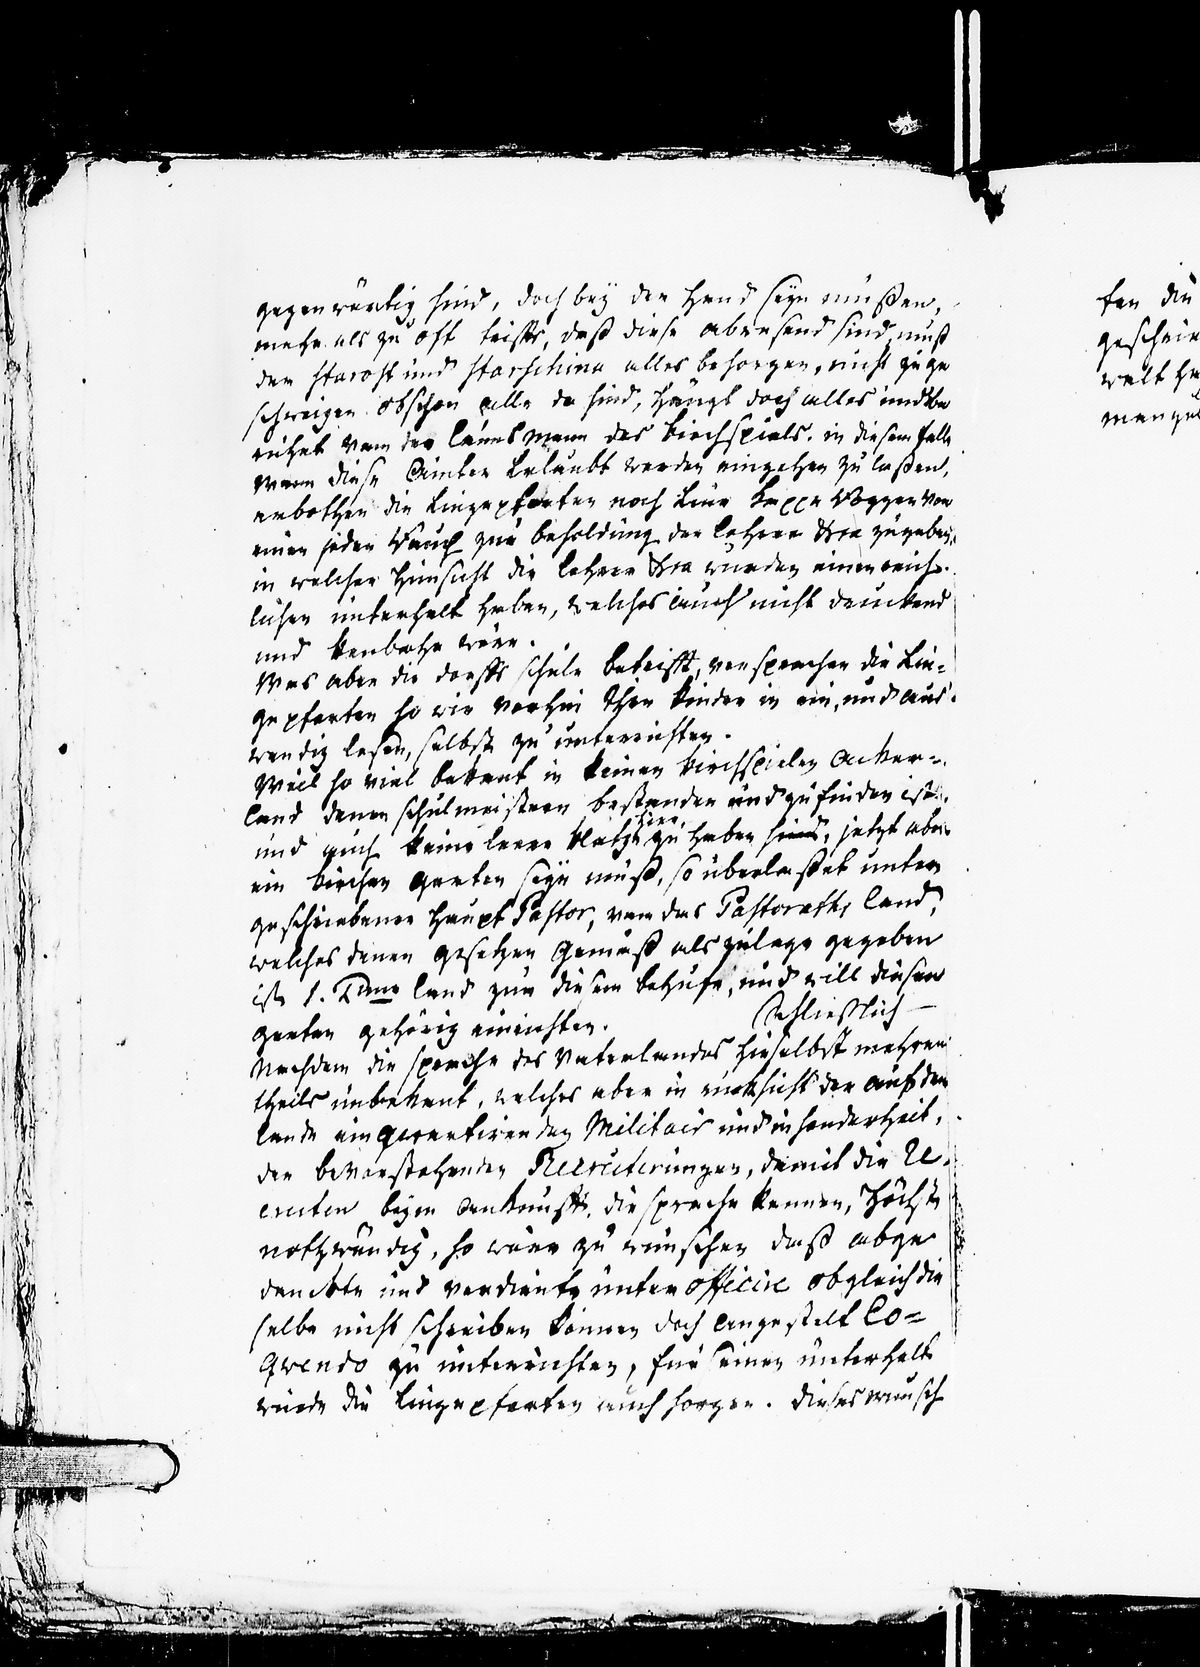 gegenwärtig sind, doch bey der Hand seyn müßen,
mehr als zu oft teiffts, daß diese abwesend sind, muß
der Starost und Starschina alles besorgen, nicht zu ge
schweigen obschon alle da sind, hängt doch alles und be
ruhet von der länsmann des Kirchspiels. in diesem falle
wenn diese Ämter erlaubt werden eingehen zu laßen,
erbothen die Eingepfarten noch eine Kappe Roggen von
einen jeden Rauch zur besoldung der Lehrer zugeben,
in welcher hinsicht die Lehrer würden einen reich-
lichen unterhalt haben, welches auch nicht drückend
und wäre.
Was aber die dorffs schule betrifft, versprachen die Ein-
gepfarten so wie vorhin Ihre Kinder in ein, und aus-
wendig lesen, selbst zu unterrichten.
Weil so viel bekant in keinen Kirchspielen Acker-
land denen schulmeistern bestanden und zu finden ist
und auch keine leere Plätze hier zu haben sind, jetzt aber
ein Kirchen Garten seyn muß, so überlaßet unter
geschriebener Haupt Pastor, von das Pastoraths Land,
welches denen Gesetzen Gemäß als zulage gegeben
ist 1. Tonne land zur diesem behufe, und will diesen
Garten gehörig einrichten. Schließlich —
Nachdem die sprache des Vaterlandes hieselbst mehren
theils unbekant, welches aber in rücksicht der auf dem
lande einquartirenden Militair und insonderheit,
der bevorstehenden Recruterungen, damit die Re-
cruten beym Ankunft, die sprache kennen, Höchst
nothwendig, so wäre zu wünschen daß abge
danckte und verdiente unter officire obgleich die
selbe nicht schreiben können doch angestelt Lo=
qvendo zu unterrichten, für seinen unterhalt
würde die Eingepfarten auch sorgen. dieses wunsch
fen die
geschrie
walt ha
mangel